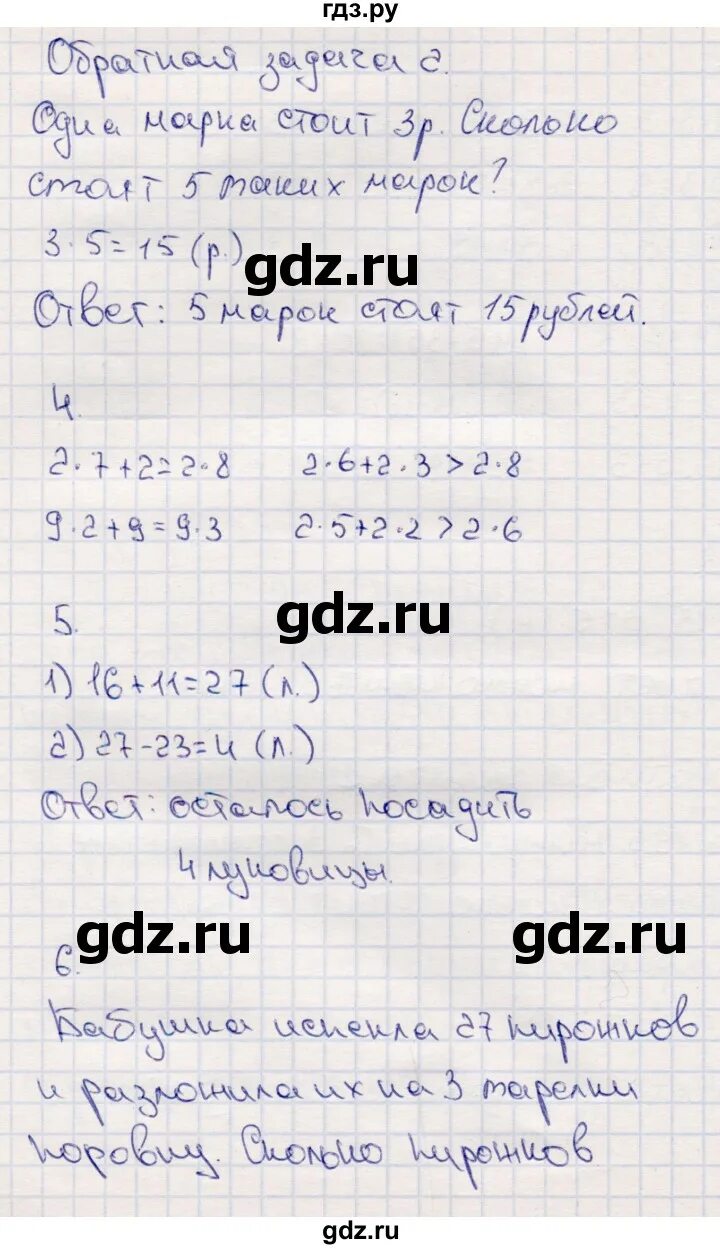 гдз.ру
Обратная задача 2.
Одна марка стоит 3р. Сколько
стоят 5 таких марок?
3·5=15 (р.)
gdz.ru
Ответ: 5 марок стоят 15 рублей.
4.
2·7+2=2·8 2·6+2·3>2·8
9·2+9=9·3 2·5+2·2>2·6
5.
gdz.ru
1) 16+11=27 (л.)
2) 27-23=4 (л.)
Ответ: осталось посадить
4 луковицы.
gdz.ru gdz.ru
6.
Бабушка испекла 27 пирожков
и разложила их на 3 тарелки
поровну. Сколько пирожков
gdz.ru